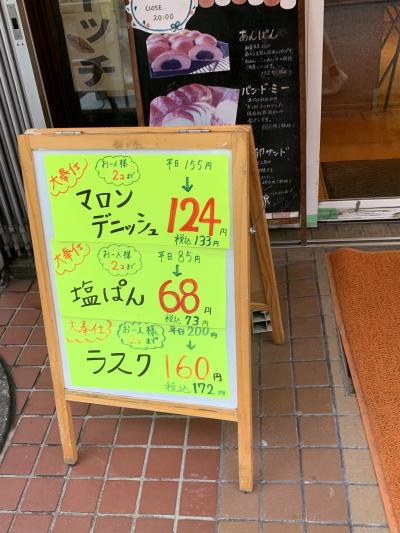 CLOSE
20:00
ッチ
あんぱん
パン・ド・ミー
卵サンド
大奉仕
お一人様
2コまで
平日 155円
↓
マロン
デニッシュ
124円
税込 133円
大奉仕
お一人様
2コまで
平日 85円
↓
塩ぱん
68円
税込 73円
大奉仕
お一人様
2コまで
平日 200円
↓
ラスク
160円
税込 172円